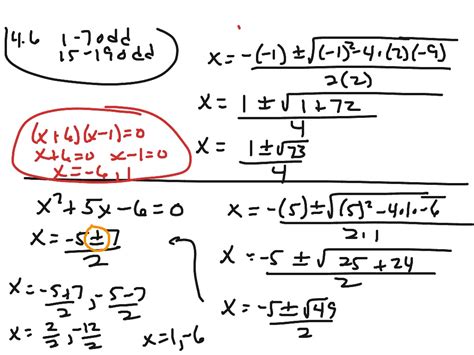 4.6 1-7 odd
15-19 odd
x = -(-1) ± √(-1)²-4·(2)(-9) / 2(2)
x = 1 ± √1+72 / 4
x = 1 ± √73 / 4
(x+6)(x-1)=0
x+6=0 x-1=0
x=-6,1
x²+5x-6=0
x = -5±7 / 2
x = -5+7 / 2 , -5-7 / 2
x = 2/2, -12/2 x=1,-6
x = -(5)±√(5)²-4·1·-6 / 2·1
x = -5 ± √25+24 / 2
x = -5±√49 / 2